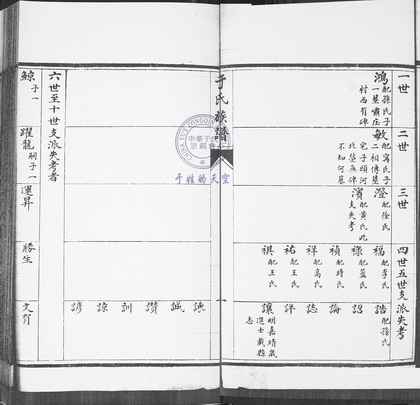 一世
鴻 配孫氏子
一塋肅庄
村西有碑
二世
敏 配甯氏子
二相傅塋
宅子頭河
北塋無碑
不知何葬
三世
澄 配徐氏
濱 配黄氏此
支失考
四世五世支派失考
福 配李氏
祿 配藍氏
禎 配時氏
祥 配高氏
祐 配王氏
祺 配王氏
誥 配孫氏
詔
論
誌
評
讓 明嘉靖歲
進士載縣
志
于氏族譜
一
中華于氏
宗親會
于姓的天空
諫
誠
讚
訓
諒
諺
六世至十世支派失考者
鯨 子一
躍龍 嗣子一
運昇
勝生
文育